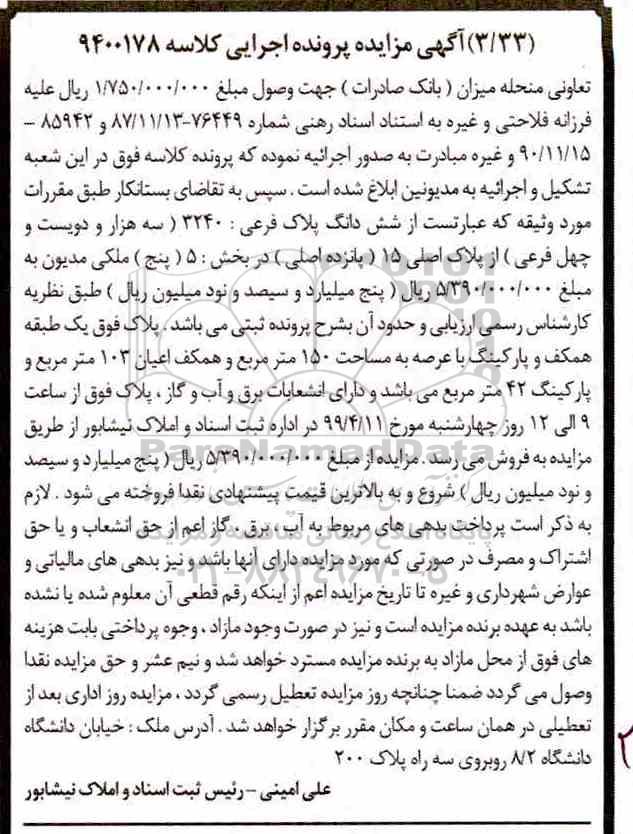 (۳/۳۳) آگهی مزایده پرونده اجرایی کلاسه ۹۴۰۰۱۷۸
تعاونی منحله میزان ( بانک صادرات ) جهت وصول مبلغ ۱/۷۵۰/۰۰۰/۰۰۰ ریال علیه
فرزانه فلاحتی و غیره به استناد اسناد رهنی شماره ۷۶۴۴۹-۸۷/۱۱/۱۳ و ۸۵۹۴۲ –
۹۰/۱۱/۱۵ و غیره مبادرت به صدور اجرائیه نموده که پرونده کلاسه فوق در این شعبه
تشکیل و اجرائیه به مدیونین ابلاغ شده است . سپس به تقاضای بستانکار طبق مقررات
مورد وثیقه که عبارتست از شش دانگ پلاک فرعی : ۳۲۴۰ ( سه هزار و دویست و
چهل فرعی ) از پلاک اصلی ۱۵ ( پانزده اصلی ) در بخش : ۵ ( پنج ) ملکی مدیون به
مبلغ ۵/۳۹۰/۰۰۰/۰۰۰ ریال ( پنج میلیارد و سیصد و نود میلیون ریال ) طبق نظریه
کارشناس رسمی ارزیابی و حدود آن بشرح پرونده ثبتی می باشد . پلاک فوق یک طبقه
همکف و پارکینگ با عرصه به مساحت ۱۵۰ متر مربع و همکف اعیان ۱۰۳ متر مربع و
پارکینگ ۴۲ متر مربع می باشد و دارای انشعابات برق و آب و گاز ، پلاک فوق از ساعت
۹ الی ۱۲ روز چهارشنبه مورخ ۹۹/۴/۱۱ در اداره ثبت اسناد و املاک نیشابور از طریق
مزایده به فروش می رسد . مزایده از مبلغ ۵/۳۹۰/۰۰۰/۰۰۰ ریال ( پنج میلیارد و سیصد
و نود میلیون ریال ) شروع و به بالاترین قیمت پیشنهادی نقدا فروخته می شود . لازم
به ذکر است پرداخت بدهی های مربوط به آب ، برق ، گاز اعم از حق انشعاب و یا حق
اشتراک و مصرف در صورتی که مورد مزایده دارای آنها باشد و نیز بدهی های مالیاتی و
عوارض شهرداری و غیره تا تاریخ مزایده اعم از اینکه رقم قطعی آن معلوم شده یا نشده
باشد به عهده برنده مزایده است و نیز در صورت وجود مازاد ، وجوه پرداختی بابت هزینه
های فوق از محل مازاد به برنده مزایده مسترد خواهد شد و نیم عشر و حق مزایده نقدا
وصول می گردد ضمنا چنانچه روز مزایده تعطیل رسمی گردد ، مزایده روز اداری بعد از
تعطیلی در همان ساعت و مکان مقرر برگزار خواهد شد . آدرس ملک : خیابان دانشگاه
دانشگاه ۸/۲ روبروی سه راه پلاک ۲۰۰
علی امینی – رئیس ثبت اسناد و املاک نیشابور
ParsNamadData